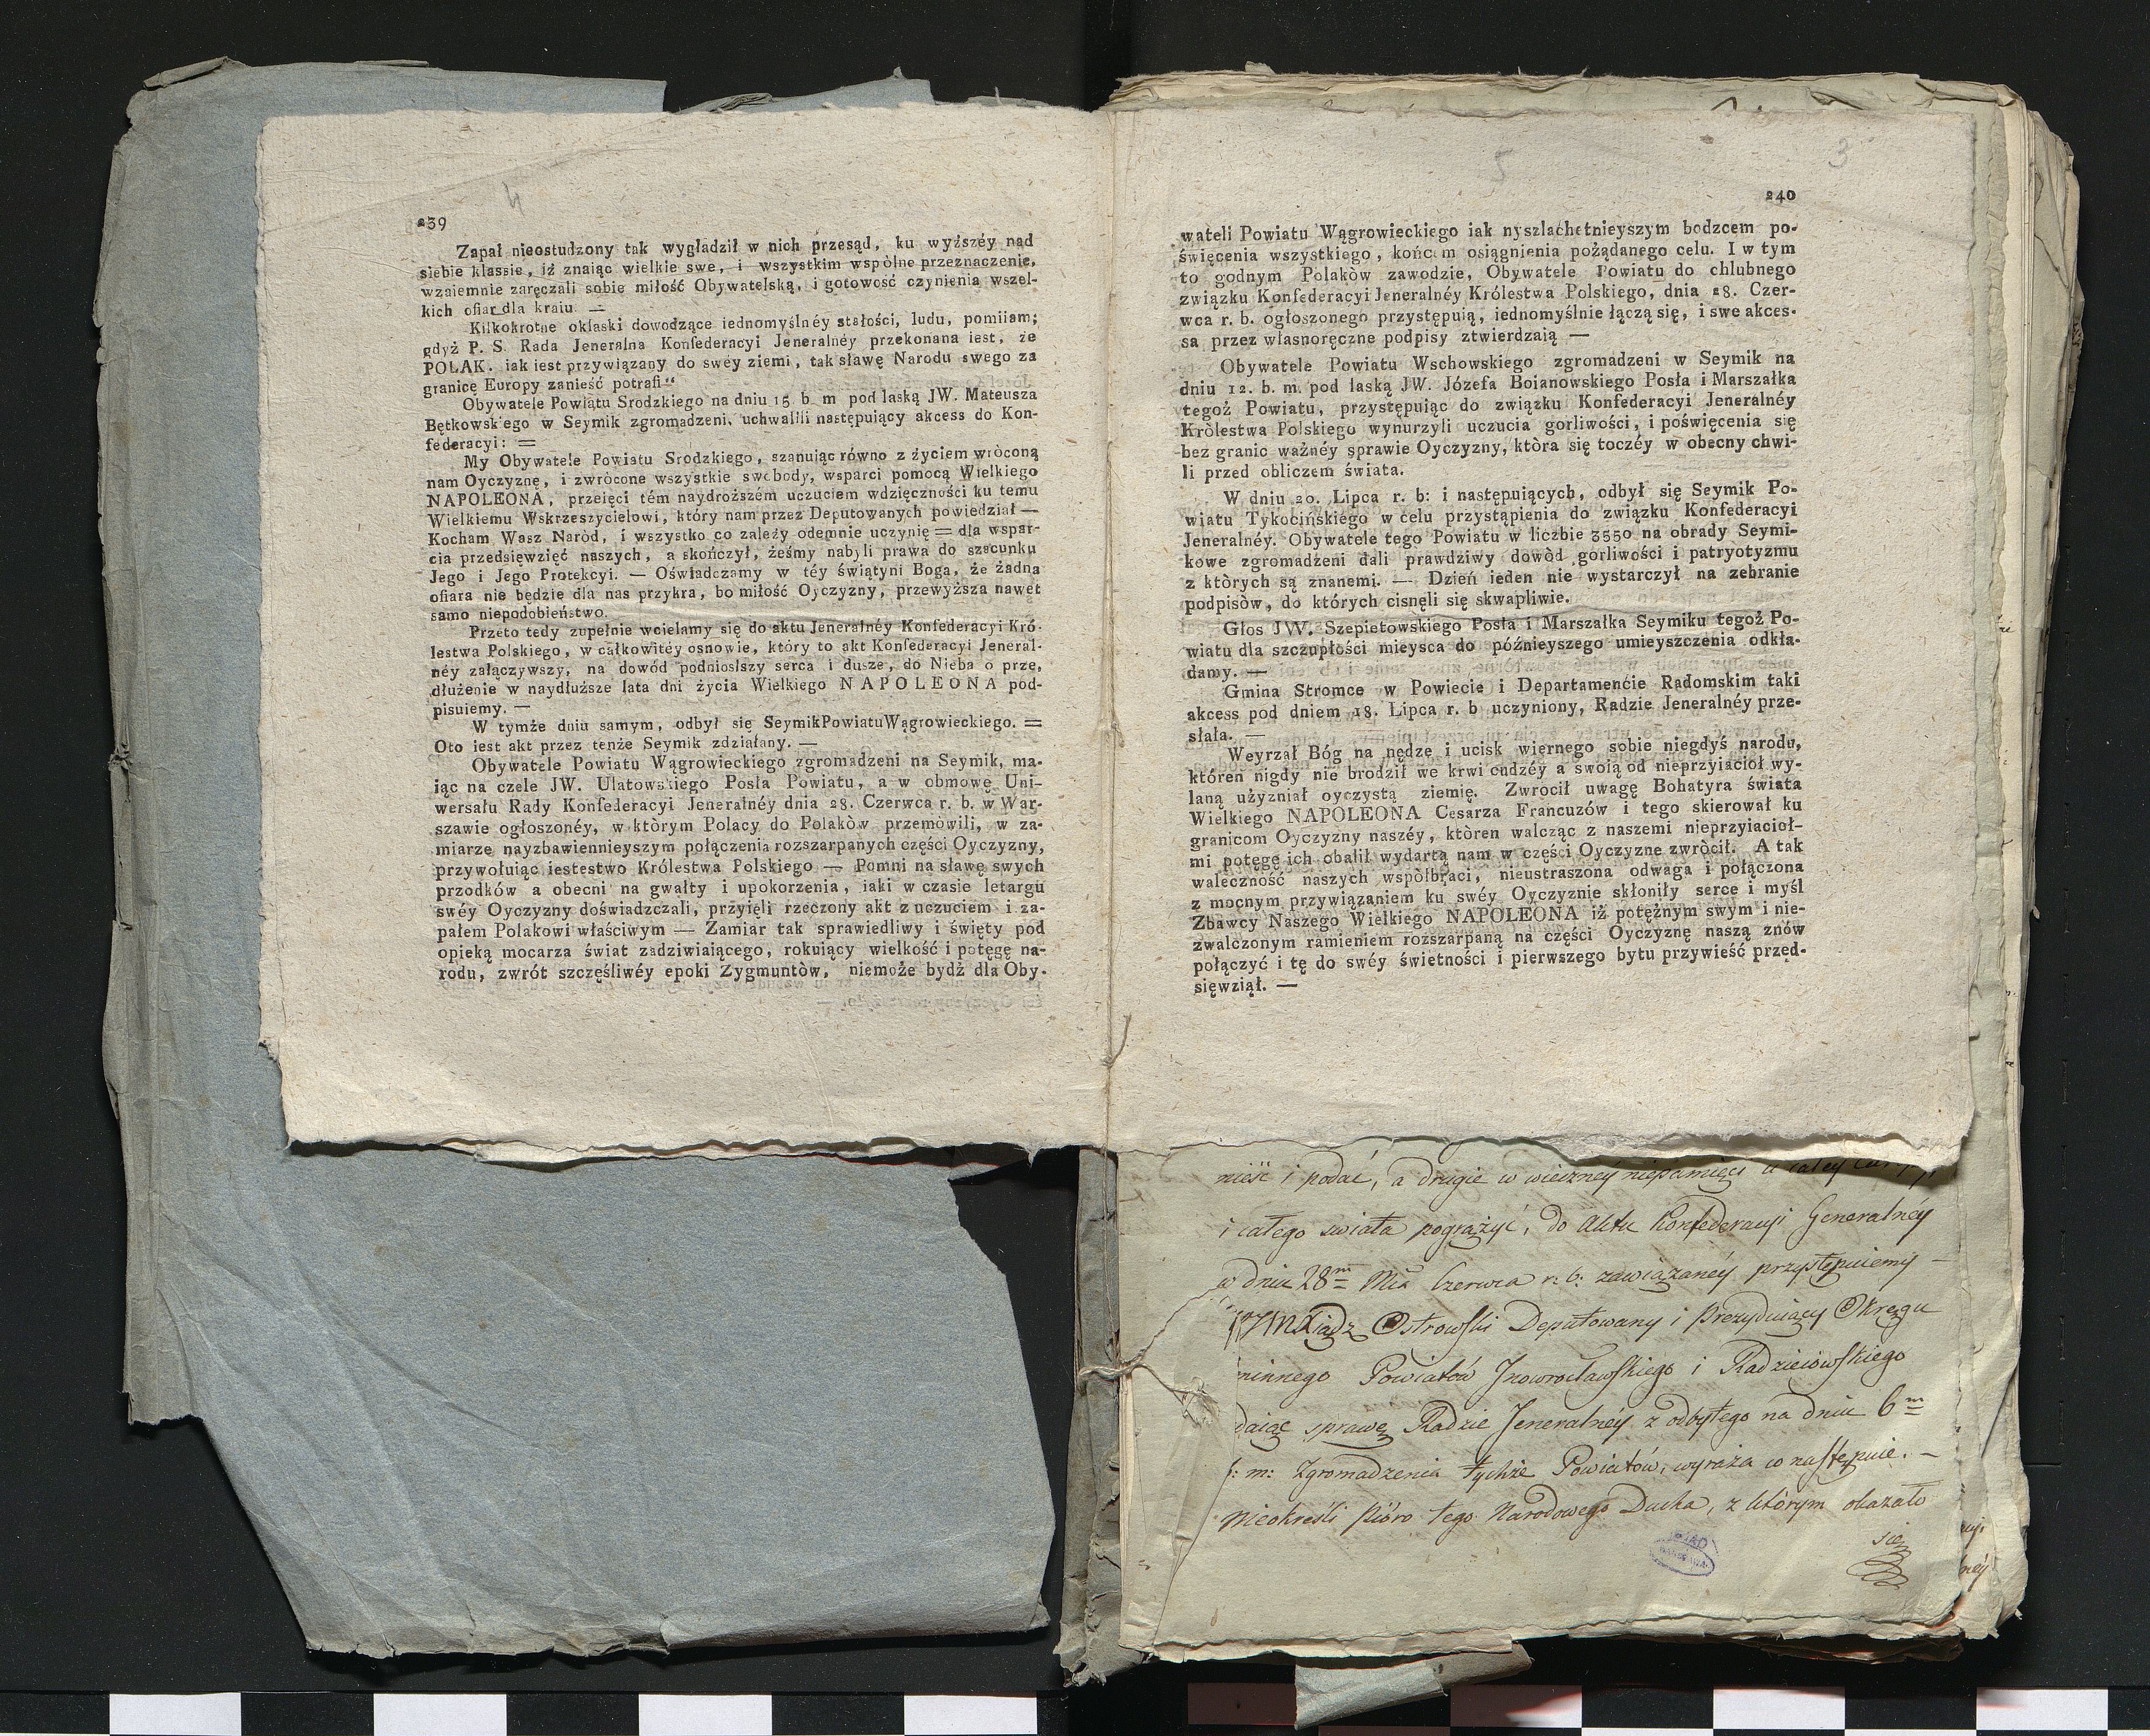 4
239
Zapał nieostudzony tak wygładził w nich przesąd, ku wyższéy nad
siebie klassie, iż znaiąc wielkie swe, i wszystkim wspòlne przeznaczenie,
wzaiemnie zaręczali sobie miłość Obywatelską, i gotowość czynienia wszel-
kich ofiar dla kraiu. =
Kilkokrotne oklaski dowodzące iednomyślnéy stałości, ludu, pomiiam;
gdyż P. S. Rada Jeneralna Konfederacyi Jeneralnéy przekonana iest, że
POLAK. iak iest przywiązany do swéy ziemi, tak sławę Narodu swego za
granicę Europy zanieść potrafi“
Obywatele Powiatu Srodzkiego na dniu 15 b. m pod laską JW. Mateusza
Bętkowskiego w Seymik zgromadzeni, uchwalili następuiący akcess do Kon-
federacyi: =
My Obywatele Powiatu Srodzkiego, szanuiąc równo z życiem wròconą
nam Oyczyznę, i zwròcone wszystkie swobody, wsparci pomocą Wielkiego
NAPOLEONA, przeięci tém naydroższém uczuciem wdzięczności ku temu
Wielkiemu Wskrzeszycielowi, który nam przez Deputowanych powiedział —
Kocham Wasz Naròd, i wszystko co zależy odemnie uczynię = dla wspar-
cia przedsięwzięć naszych, a skończył, żeśmy nabyli prawa do szacunku
Jego i Jego Protekcyi. — Oświadczamy w téy świątyni Boga, że żadna
ofiara nie będzie dla nas przykra, bo miłość Oyczyzny, przewyższa nawet
samo niepodobieństwo.
Przeto tedy zupełnie wcielamy się do aktu Jeneralnéy Konfederacyi Kró-
lestwa Polskiego, w całkowitéy osnowie, który to akt Konfederacyi Jeneral-
néy załączywszy, na dowód podniosłszy serca i dusze, do Nieba o prze,
dłużenie w naydłuższe lata dni życia Wielkiego NAPOLEONA pod-
pisuiemy. —
W tymże dniu samym, odbył się Seymik Powiatu Wągrowieckiego. =
Oto iest akt przez tenże Seymik zdziałany. —
Obywatele Powiatu Wągrowieckiego zgromadzeni na Seymik, ma-
iąc na czele JW. Ulatowskiego Posła Powiatu, a w obmowę Uni-
wersału Rady Konfederacyi Jeneralnéy dnia 28. Czerwca r. b. w War-
szawie ogłoszonéy, w ktòrym Polacy do Polakòw przemòwili, w za-
miarze nayzbawiennieyszym połączenia rozszarpanych części Oyczyzny,
przywołuiąc iestestwo Królestwa Polskiego — Pomni na sławę swych
przodków a obecni na gwałty i upokorzenia, iaki w czasie letargu
swéy Oyczyzny doświadczali, przyięli rzeczony akt z uczuciem i za-
pałem Polakowi właściwym — Zamiar tak sprawiedliwy i święty pod
opieką mocarza świat zadziwiaiącego, rokuiący wielkość i potęgę na-
rodu, zwrót szczęśliwéy epoki Zygmuntòw, niemoże bydź dla Oby-
5
3
240
wateli Powiatu Wągrowieckiego iak nyszlachetnieyszym bodzcem po-
święcenia wszystkiego, końcem osiągnienia pożądanego celu. I w tym
to godnym Polakòw zawodzie, Obywatele Powiatu do chlubnego
związku Konfederacyi Jeneralnéy Królestwa Polskiego, dnia 28. Czer-
wca r. b. ogłoszonego przystępuią, iednomyślnie łączą się, i swe akces-
sa przez własnoręczne podpisy ztwierdzaią —
Obywatele Powiatu Wschowskiego zgromadzeni w Seymik na
dniu 12. b. m. pod laską JW. Józefa Boianowskiego Posła i Marszałka
tegoż Powiatu, przystępuiąc do związku Konfederacyi Jeneralnéy
Kròlestwa Polskiego wynurzyli uczucia gorliwości, i poświęcenia się
bez granic ważnéy sprawie Oyczyzny, ktòra się toczéy w obecny chwi-
li przed obliczem świata.
W dniu 20. Lipca r. b: i następuiących, odbył się Seymik Po-
wiatu Tykocińskiégo w celu przystąpienia do związku Konfederacyi
Jeneralnéy. Obywatele tego Powiatu w liczbie 3550 na obrady Seymi-
kowe zgromadzeni dali prawdziwy dowòd gorliwości i patryotyzmu
z ktòrych są znanemi. — Dzień ieden nie wystarczył na zebranie
podpisòw, do których cisnęli się skwapliwie.
Głos JW. Szepietowskiego Posła i Marszałka Seymiku tegoż Po-
wiatu dla szczupłości mieysca do późnieyszego umieyszczenia odkła-
damy. —
Gmina Stromce w Powiecie i Departamencie Radomskim taki
akcess pod dniem 18. Lipca r. b uczyniony, Radzie Jeneralnéy prze-
słała. —
Weyrzał Bóg na nędzę i ucisk wiernego sobie niegdyś narodu,
któren nigdy nie brodził we krwi cudzéy a swoią od nieprzyiaciół wy-
laną użyzniał oyczystą ziemię. Zwrocił uwagę Bohatyra świata
Wielkiego NAPOLEONA Cesarza Francuzów i tego skierował ku
granicom Oyczyzny naszéy, ktòren walcząc z naszemi nieprzyiacioł-
mi potęgę ich obalił wydartą nam w części Oyczyznę zwròcił. A tak
waleczność naszych wspòłbraci, nieustraszona odwaga i połączona
z mocnym przywiązaniem ku swéy Oyczyznie skłoniły serce i myśl
Zbawcy Naszego Wielkiego NAPOLEONA iż potężnym swym i nie-
zwalczonym ramieniem rozszarpaną na części Oyczyznę naszą znów
połączyć i tę do swéy świetności i pierwszego bytu przywieść przed-
sięwziął. —
nieść i podać, a drugie w wieczney niepamięci u całey
i całego swiata pogrążyć, do Aktu Konfederacyi Generalnéy
w dniu 28m Mca Czerwca r: b: zawiązanéy przystępuiemy —
Xiądz Ostrowski Deputowany i Prezyduiący Okręgu
minnego Powiatów Jnowrocławskiego i Radzieiowskiego
daiąc sprawę Radzie Jeneralnéy z odbytego na dniu 6m
b: m: Zgromadzenia tychże Powiatów, wyraża co następuie. —
Nieokreśli Pióro tego Narodowego Ducha, z którym okazało
się